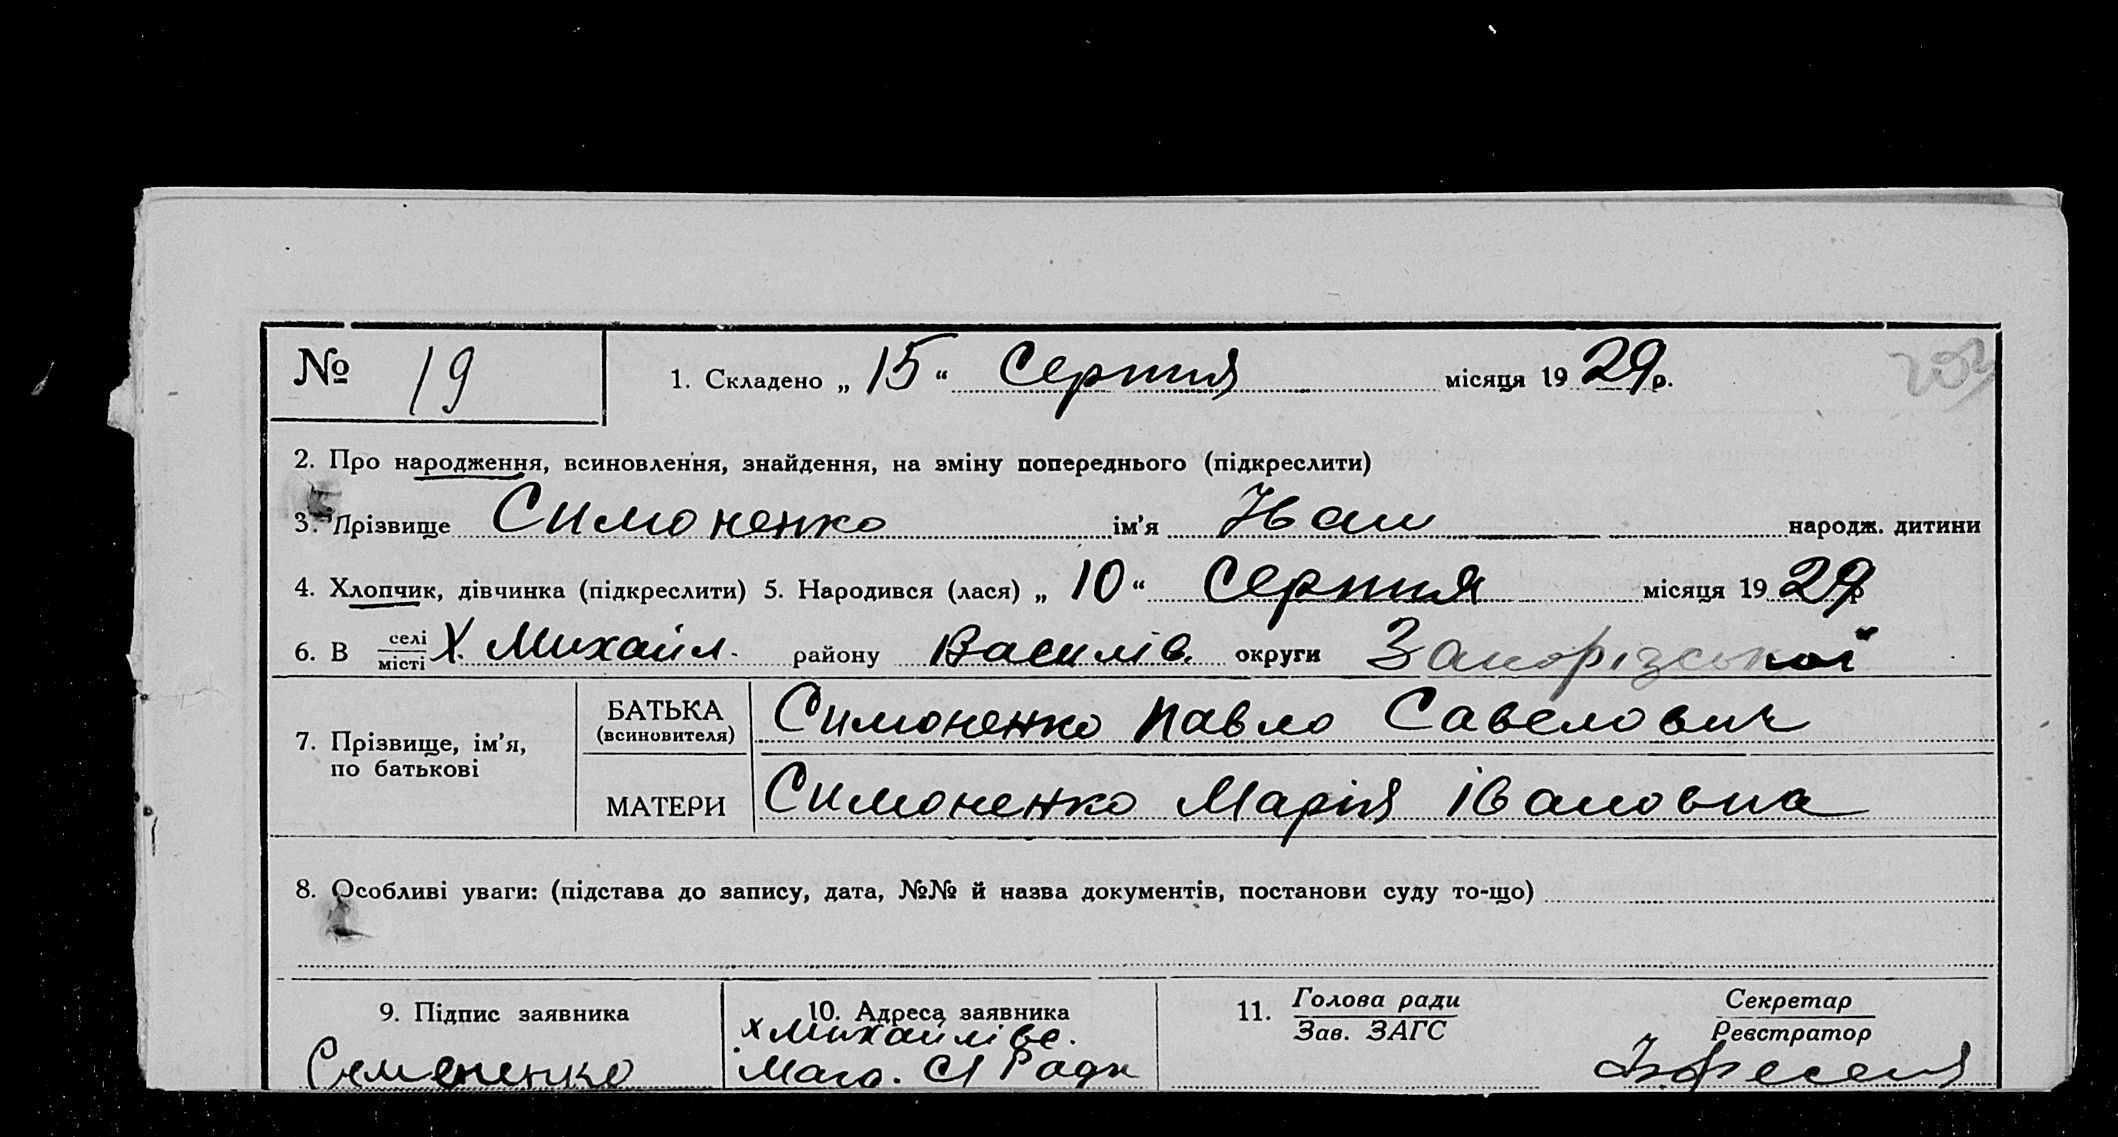 № 19 1. Складено „ 15 “ Серпня місяця 19 29 р. 203
2. Про народження, всиновлення, знайдення, на зміну попереднього (підкреслити)
3. Прізвище Симоненко ім'я Іван народж. дитини
4. Хлопчик, дівчинка (підкреслити) 5. Народився (лася) „ 10 “ Серпня місяця 19 29 р
6. В селі місті Х. Михайл. району Василів. округи Запорізської
7. Прізвище, ім'я, по батькові
БАТЬКА (всиновителя) Симоненко Павло Савелович
МАТЕРИ Симоненко Марія Івановна
8. Особливі уваги: (підстава до запису, дата, №№ й назва документів, постанови суду то-що)
9. Підпис заявника 10. Адреса заявника 11. Голова ради Зав. ЗАГС Секретар Реєстратор
х Михайлівс.
Семененко С Ради